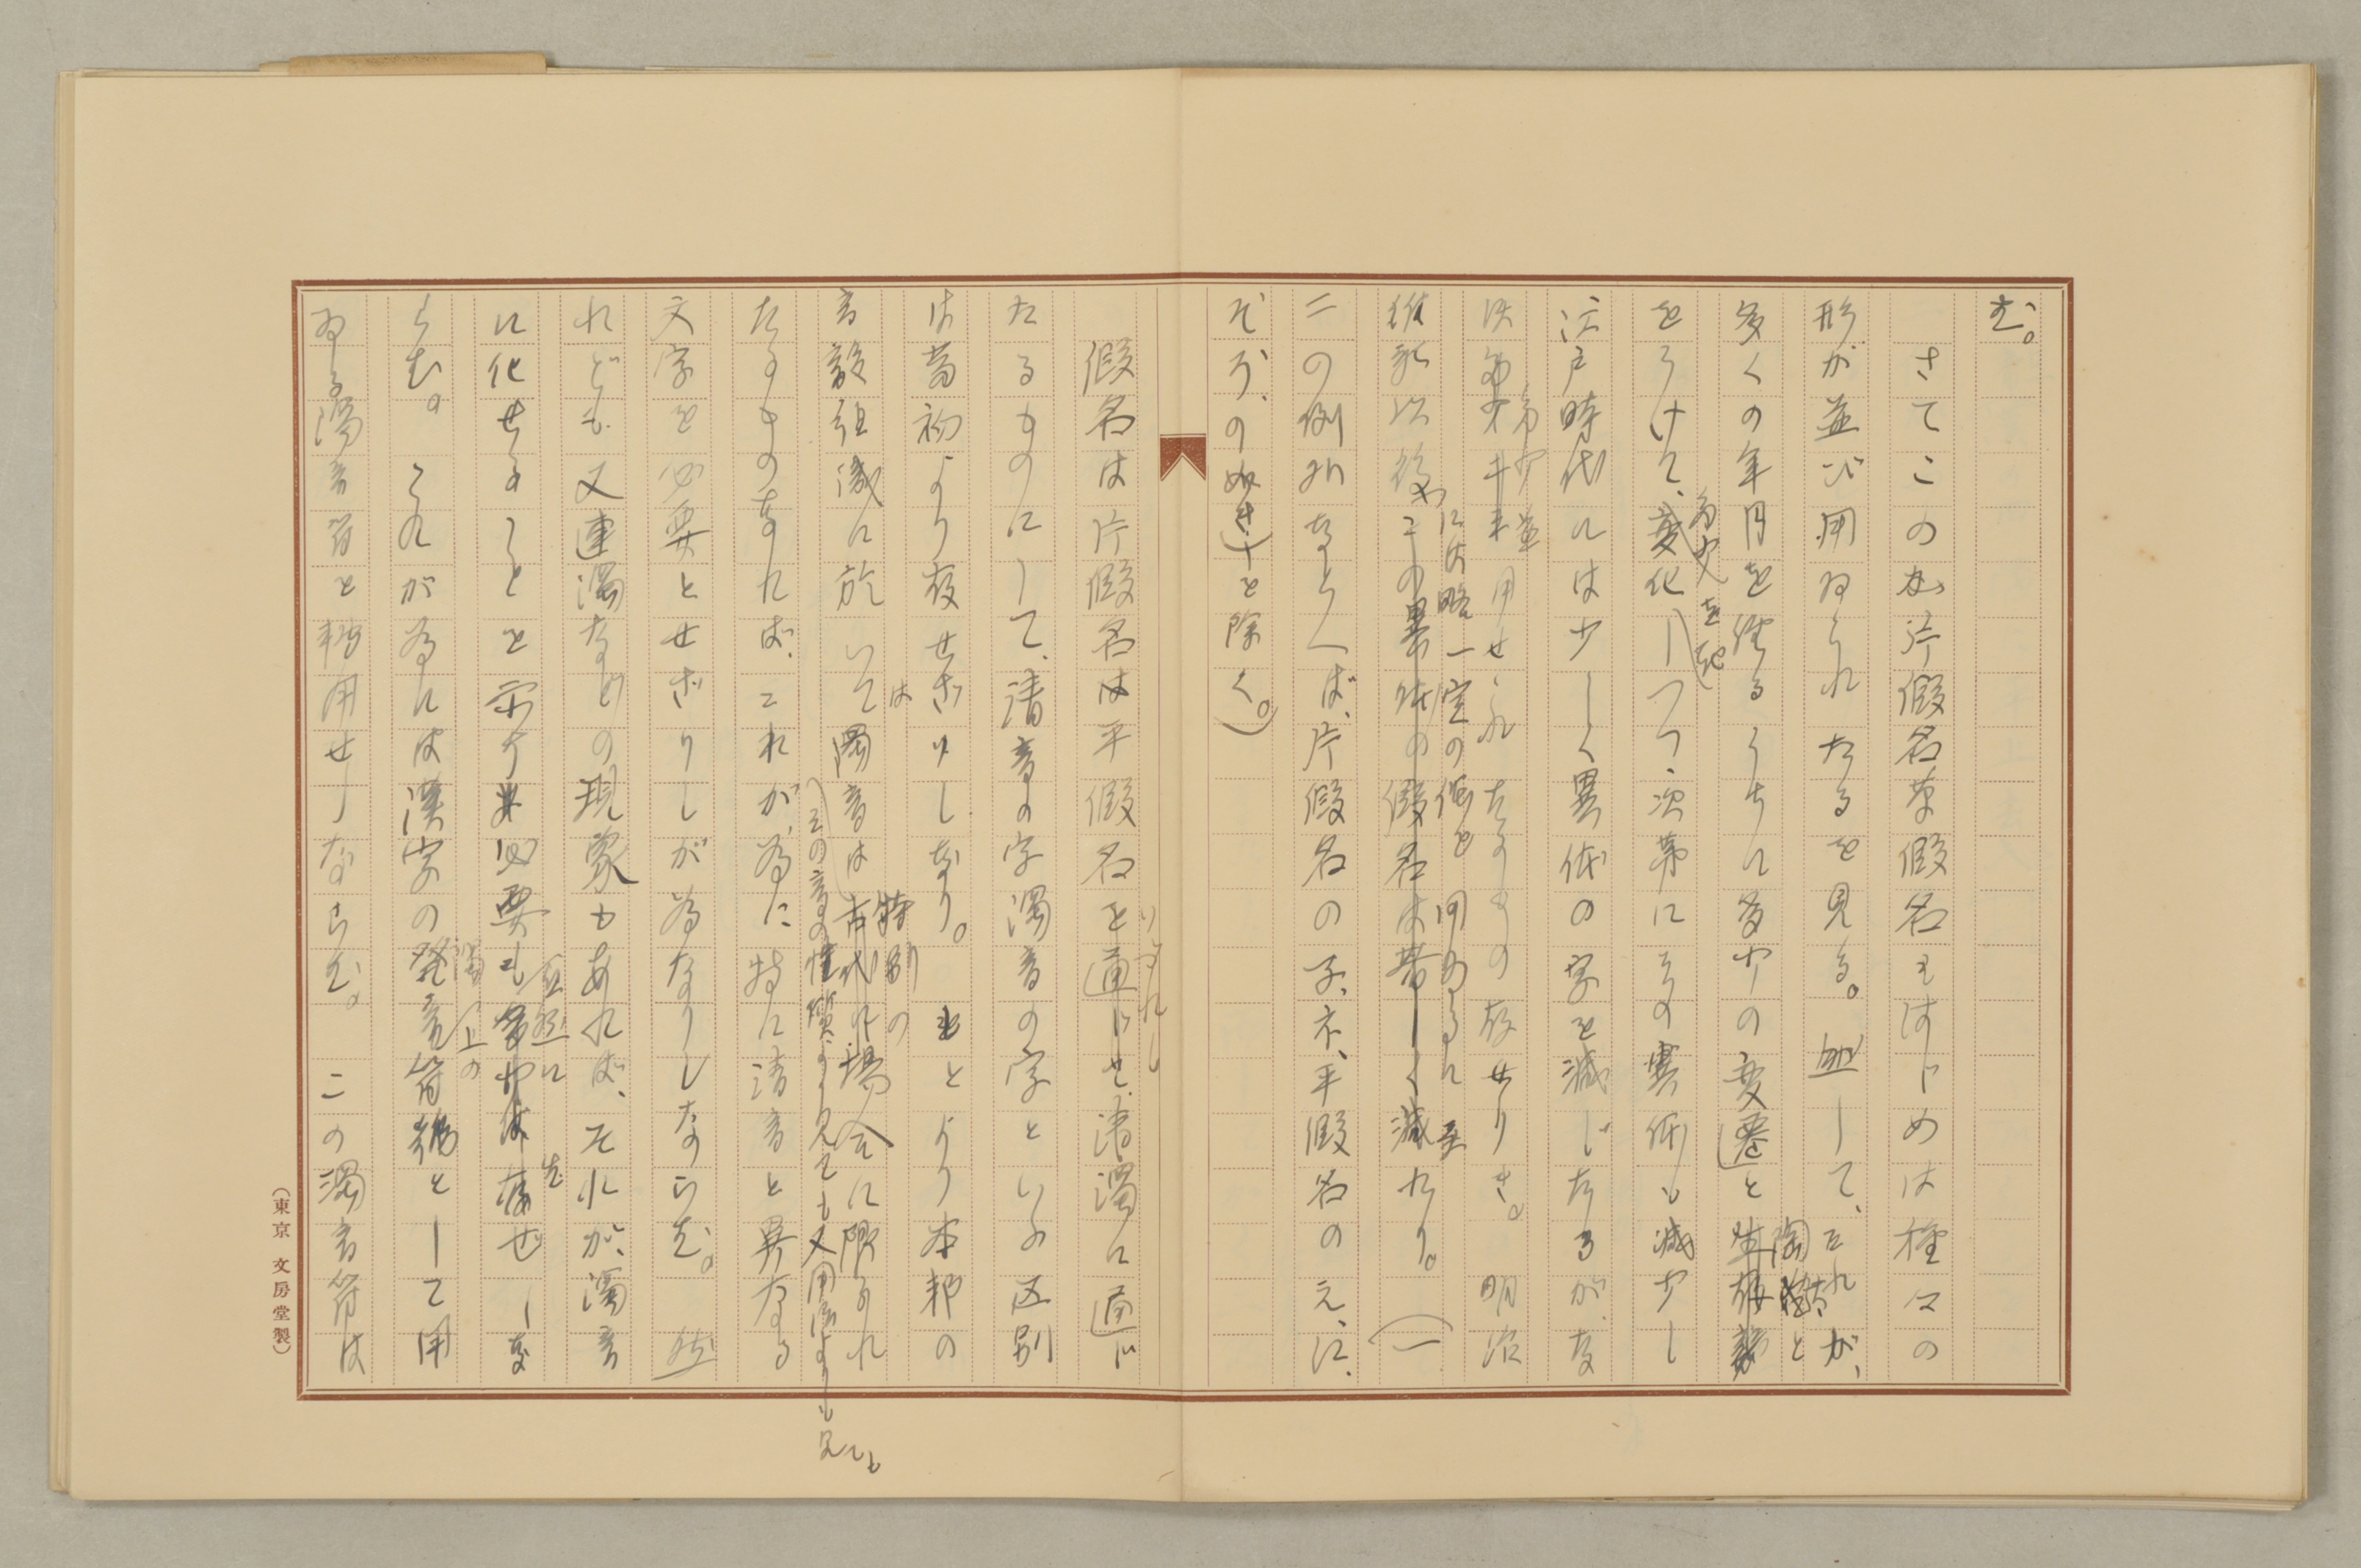 ず。
さてこの片假名草假名もはじめは種々の
形が並び用ゐられたるを見る。而して、これが、
多くの年月を經るうちに多少の変遷と陶汰と
をうけて、多少変化しつつ、次第にその異体も減少し
江戸時代には少しく異体の字を減じたるが、な
ほ多少並用せられたるものありき。明治
維新以後は大略一定の傾を用ゐるに至れり。(一
二の例外をいへば、片假名の子、ネ、平假名のえ、に、
そう、の如き)を除く。)
假名は片假名は平假名を通じて、いづれも清濁に通じ
たるものにして、清音の字濁音の字といふ区別
は当初より存せざりしなり。もとより本邦の
音韻組織に於いては濁音は特別の場合に限られ
その音の性質より見ても又用法より見ても
たるものなれば、これが為に特に清音と異なる
文字を必要とせざりしが為なりしならむ。然
れども又連濁などの現象もあれば、それが、濁音
に化せることを示す必要も自然に生ぜしな
らむ。これが為には漢字の濁上の発音符号として用
ゐる濁音符を転用せしならむ。この濁音符は
(東京 文房堂製)